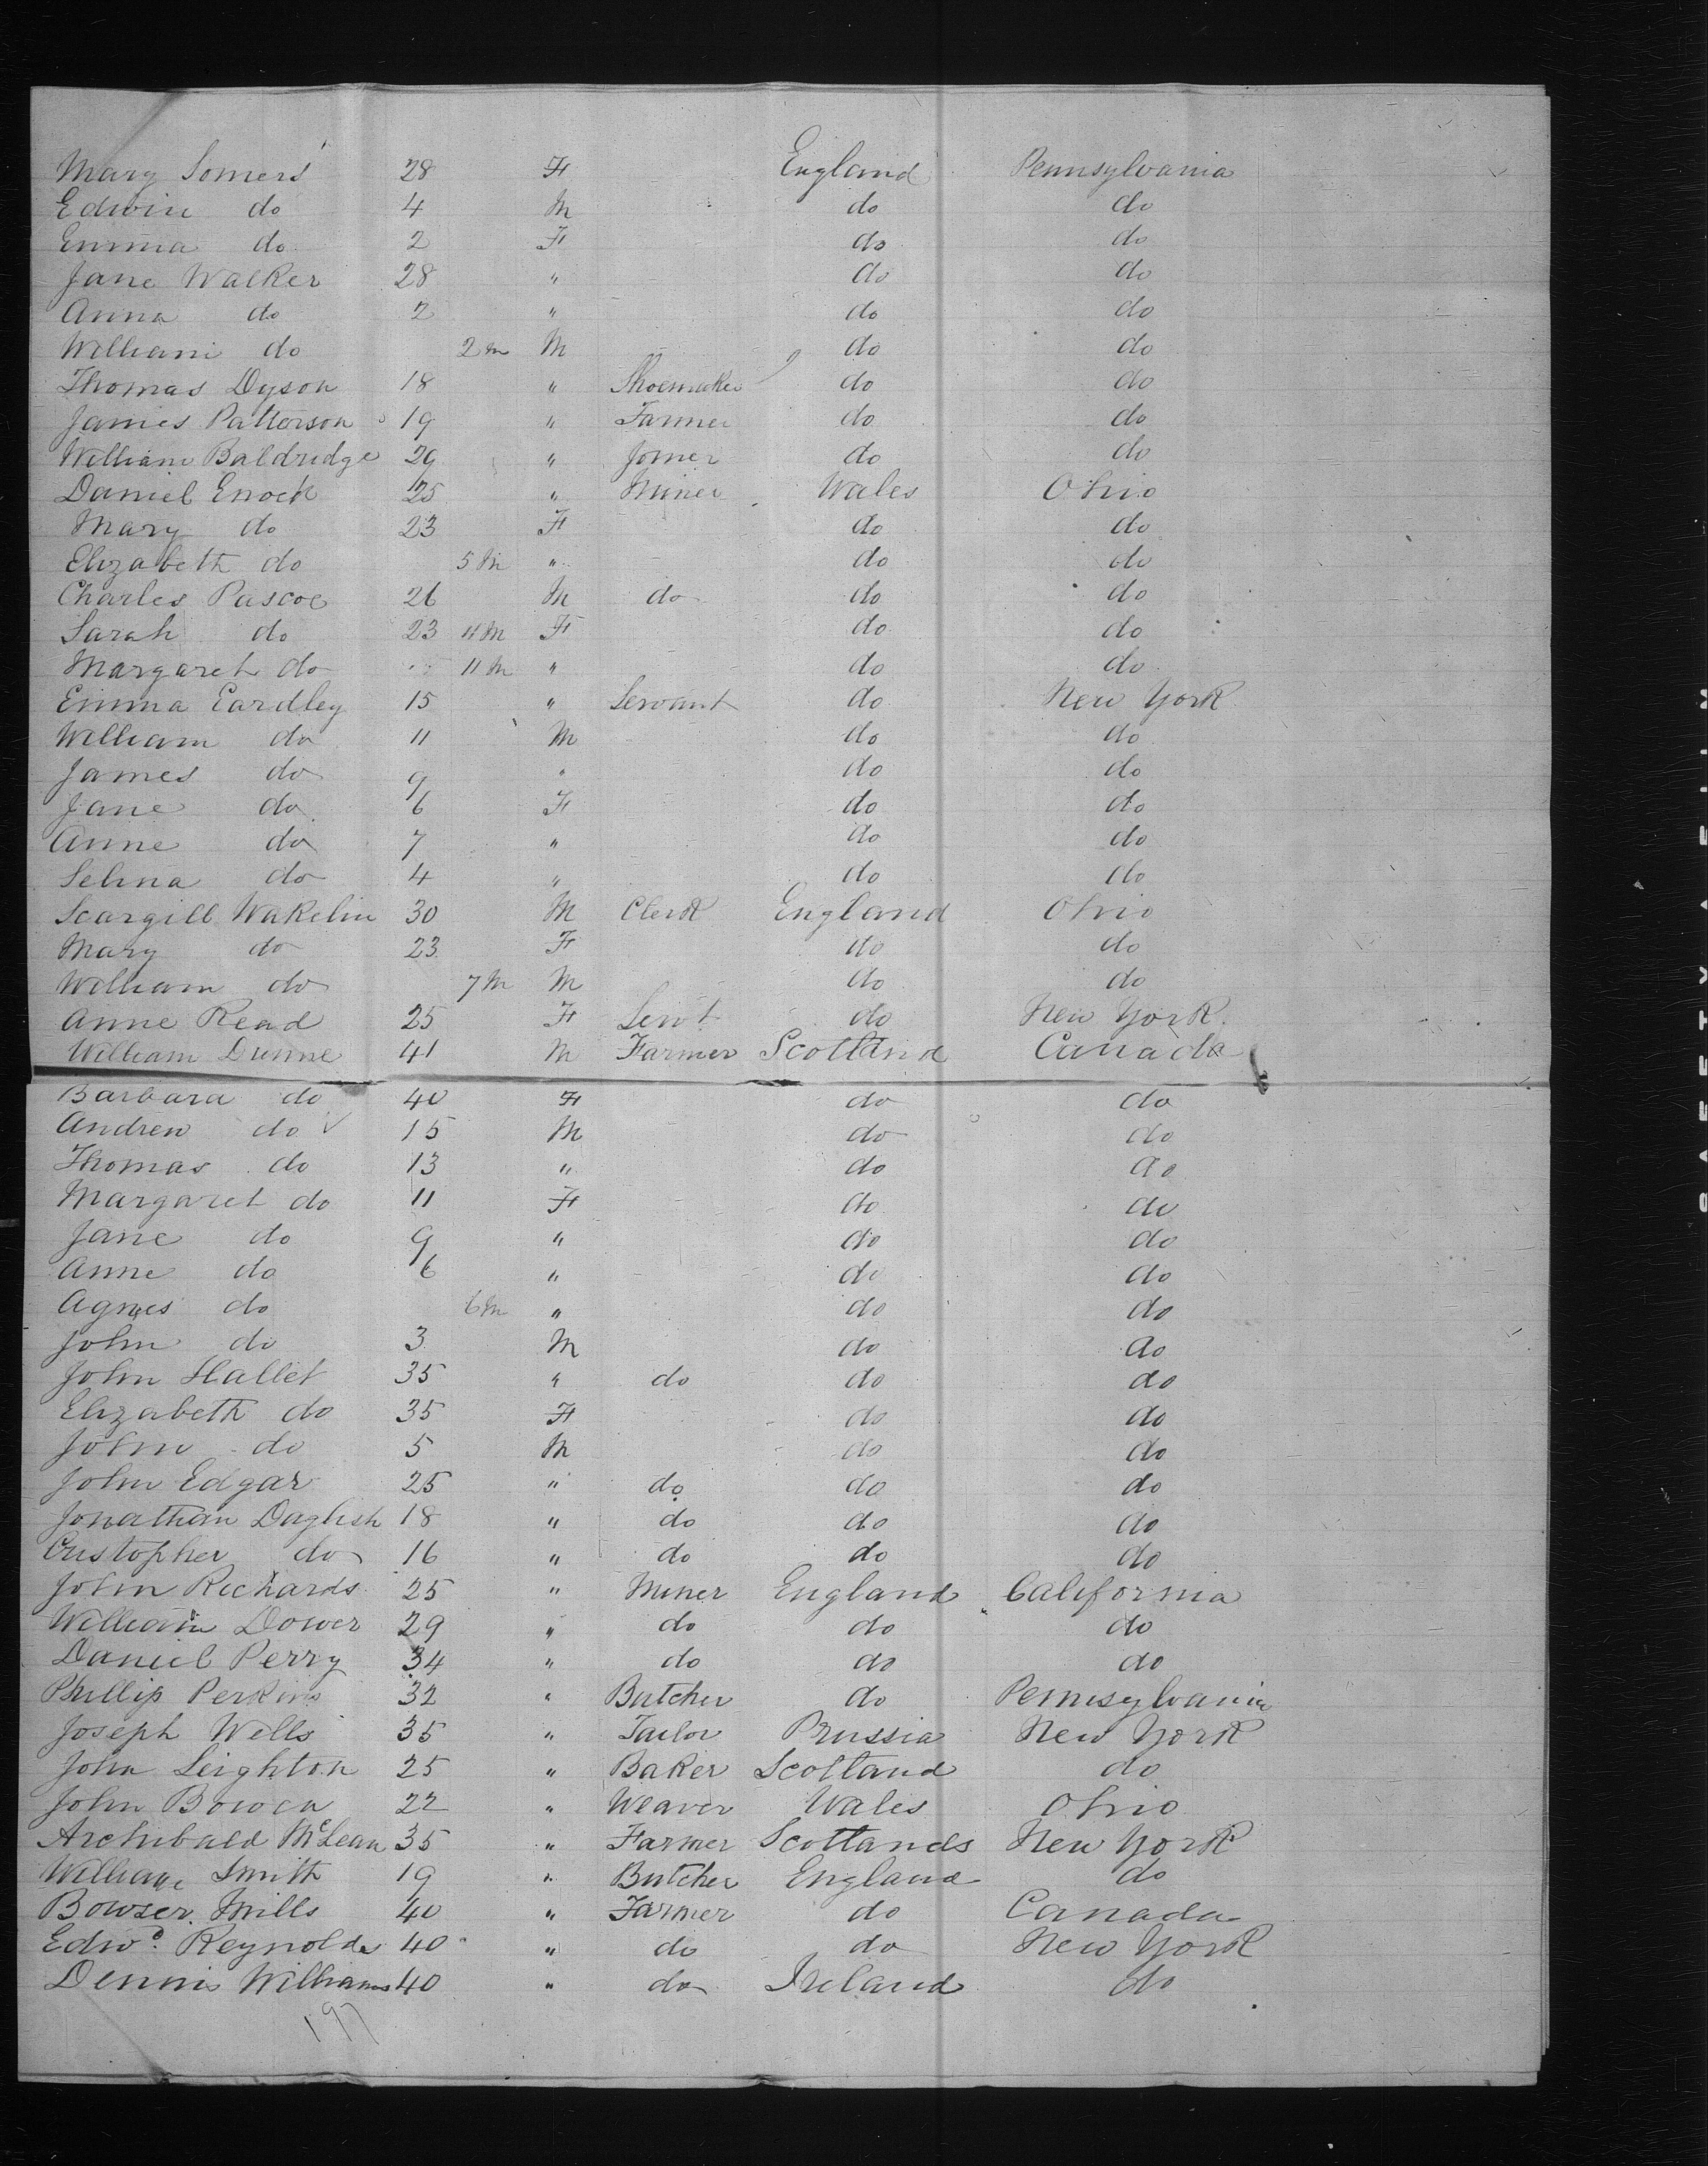 Mary Somers 28 F England Pennsylvania
Edwin do 4 M do do
Emma do 2 F do do
Jane Walker 28 " do do
Anna do 2 " do do
William do 2 m M do do
Thomas Dyson 18 " Shoemaker do do
James Patterson 19 " Farmer do do
William Baldridge 29 " Joiner do do
Daniel Enoch 25 " Miner Wales Ohio
Mary do 23 F do do
Elizabeth do 5 M " do do
Charles Pascoe 26 M do do do
Sarah do 23 11 M F do do
Margaret do 11 M " do do
Emma Eardley 15 " Servant do New York
William do 11 M do do
James do 9 " do do
Jane do 6 F do do
Anne do 7 " do do
Selina do 4 " do do
Scargill Wakelin 30 M Clerk England Ohio
Mary do 23 F do do
William do 7 M M do do
Anne Read 25 F Servt do New York
William Dunne 41 M Farmer Scotland Canada
Barbara do 40 F do do
Andrew do 15 M do do
Thomas do 13 " do do
Margaret do 11 F do do
Jane do 9 " do do
Anne do 6 " do do
Agnes do 6 M " do do
John do 3 M do do
John Hallet 35 " do do do
Elizabeth do 35 F do do
John do 5 M do do
John Edgar 25 " do do do
Jonathan Daglish 18 " do do do
Cristopher do 16 " do do do
John Richards 25 " Miner England California
William Dower 29 " do do do
Daniel Perry 34 " do do do
Phillip Perkins 32 " Butcher do Pennsylvania
Joseph Wells 35 " Tailor Prussia New York
John Leighton 25 " Baker Scotland do
John Bowen 22 " Weaver Wales Ohio
Archibald McLean 35 " Farmer Scotland New York
William Smith 19 " Butcher England do
Bowser Mills 40 " Farmer do Canada
Edwd. Reynolds 40 " do do New York
Dennis Williams 40 " do Ireland do
197